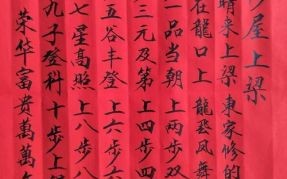 屋上梁
晴来上梁東家修的
在龍口上龍飛凤舞
一品当朝上两步双
三元及第上四步四
五谷丰登上六步
七星高照上八步八
九子登科上十步上
荣华富貴萬萬